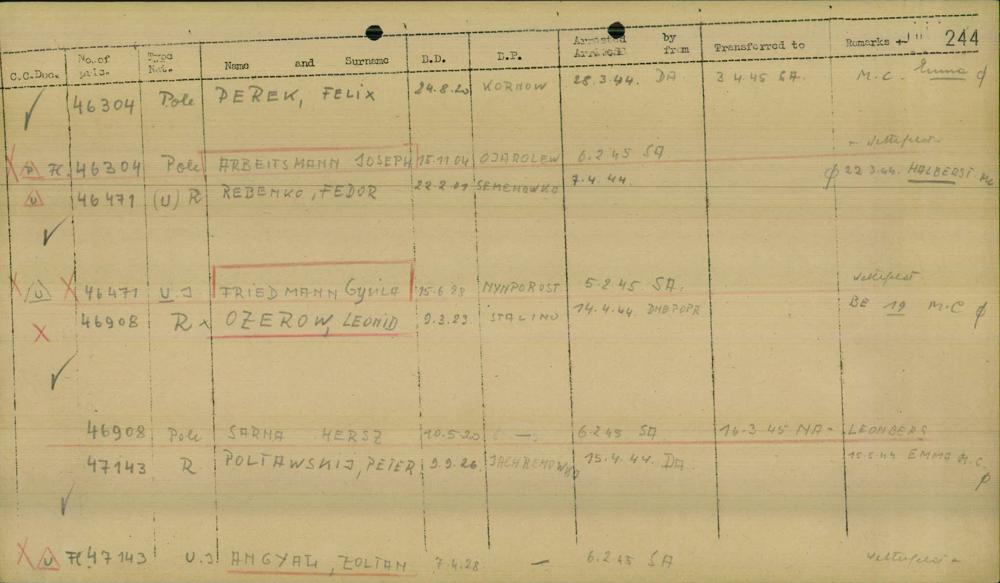 C.C.Doc. No.of pris. Type Nat. Name and Surname D.D. D.P. Arrested Arrived by from Transferred to Remarks 244
46304 Pole PEREK, FELIX 24.8.20 KORNOW 28.3.44. DA 3 4.45 SA. M.C. Emma
P 46304 Pole ARBEITSMANN JOSEPH 15.11 04 OJAROLEW 6.2 45 SA
U 46471 (U) R REBENKO, FEDOR 22.2.01 SEMEHOWKO 7.4.44. 22 3.44. HALBERST. MC
U 46471 U.J FRIEDMANN Gyula NYNPOROST 5.2 45 SA.
46908 R x OZEROW, LEONID 9.3.23 STALINO 14.4.44. DNEPOPR BE 19 M.C
46908 Pole SARNA HERSZ 10.5.20 — 6.2 45 SA 14-3.45 NA- LEONBERG
47143 R POLTAWSKIJ, PETER 9.9.26 15.4.44. DA EMMA M.C.
U 47143 U.J ANGYAL, ZOLTAN 7.4.28 — 6.2 45 SA